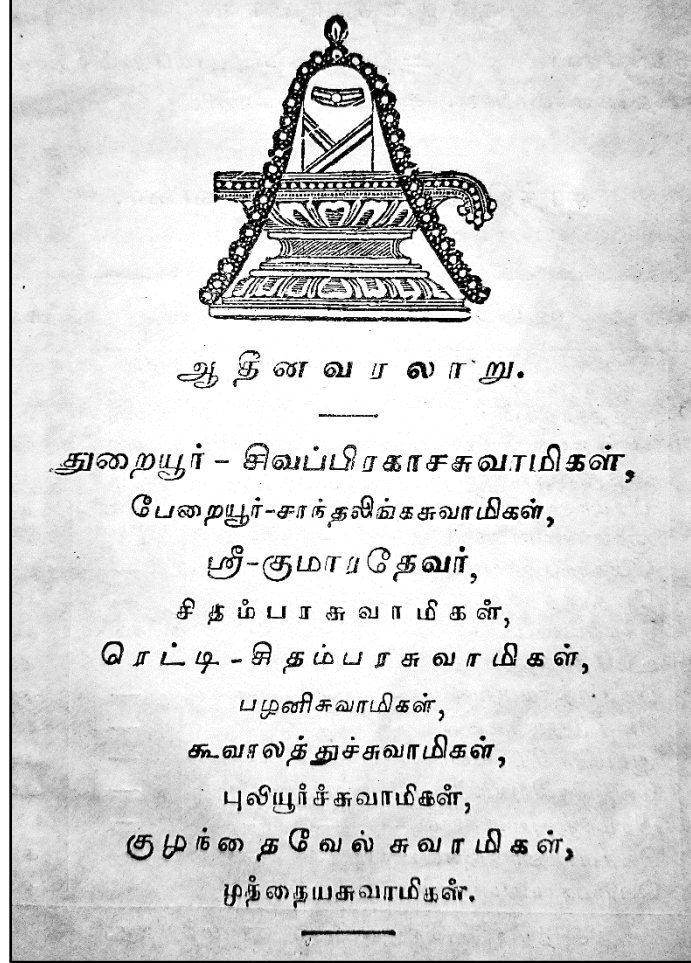 ஆதீனவரலாறு.
துறையூர் - சிவப்பிரகாசசுவாமிகள்,
பேறையூர்-சாந்தலிங்கசுவாமிகள்,
ஸ்ரீ-குமாரதேவர்,
சிதம்பரசுவாமிகள்,
ரெட்டி-சிதம்பரசுவாமிகள்,
பழனிசுவாமிகள்,
கூவாலத்துச்சுவாமிகள்,
புலியூர்ச்சுவாமிகள்,
குழந்தைவேல்சுவாமிகள்,
முத்தையசுவாமிகள்.